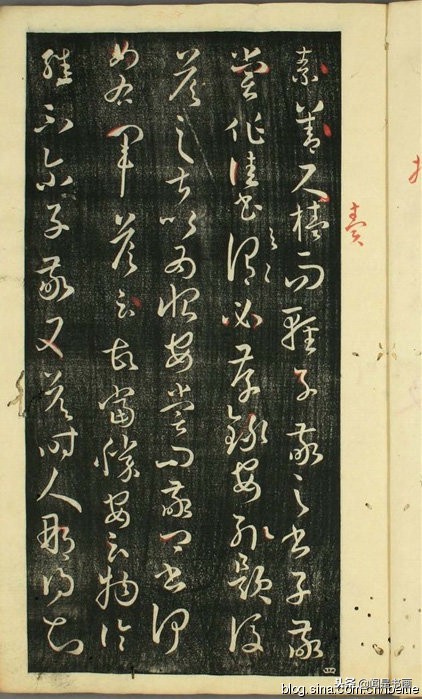 素善尺牘而輕子敬之書子敬
嘗作佳書與之謂必存錄安輒題後
答之甚以為恨安嘗問敬卿書何
如右軍答云故當勝安云物論
殊不爾子敬又答時人那得知
四
头条 @闻是书画